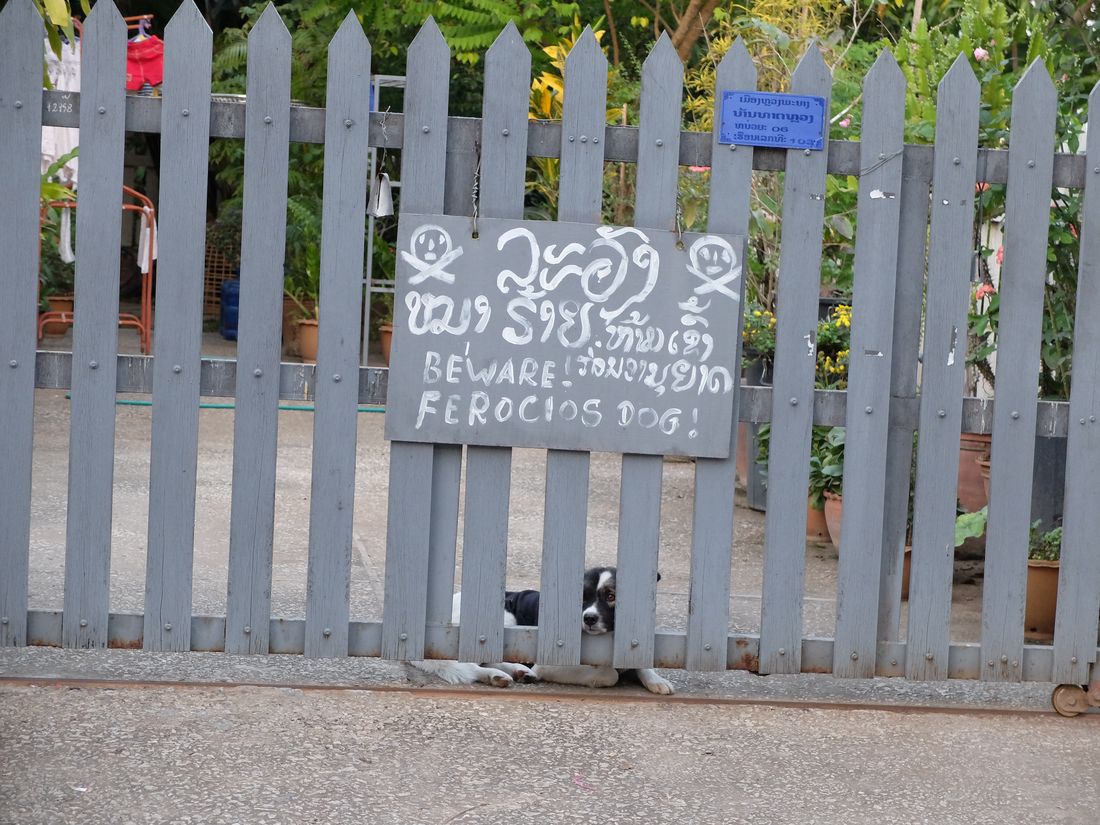 42458
ເມືອງຫຼວງພະບາງ
ບ້ານທາດຫຼວງ
ໜ່ວຍ: 06
ເຮືອນເລກທີ:
ລະວັງ
ໝາ ຮ້າຍ. ຫ້າມເຂົ້າ
BEWARE!
FEROCIOS DOG!